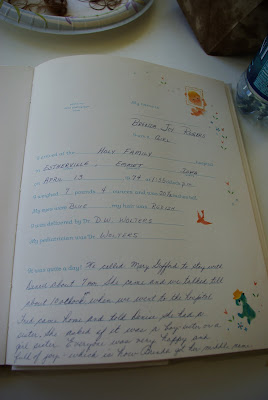 My name is
Brenda Joy Rogers
I am a Girl
I arrived at the Holy Family hospital
in Estherville, Emmet, Iowa
on April 13 1974 at 1:33 o'clock p.m.
I weighed 7 pounds 4 ounces and was 20½ inches long.
My eyes were Blue my hair was Brown
I was delivered by Dr. D.W. Wolters
My pediatrician was Dr. Wolters
It was quite a day! We called Mary Gifford to stay with
about 7am. She came and we talked till
about 10 o'clock when we went to the hospital.
came home and told she had a
sister. She asked if it was a boy sister or a
girl sister. Everyone was very happy and
full of joy - which is how Brenda got her middle name.